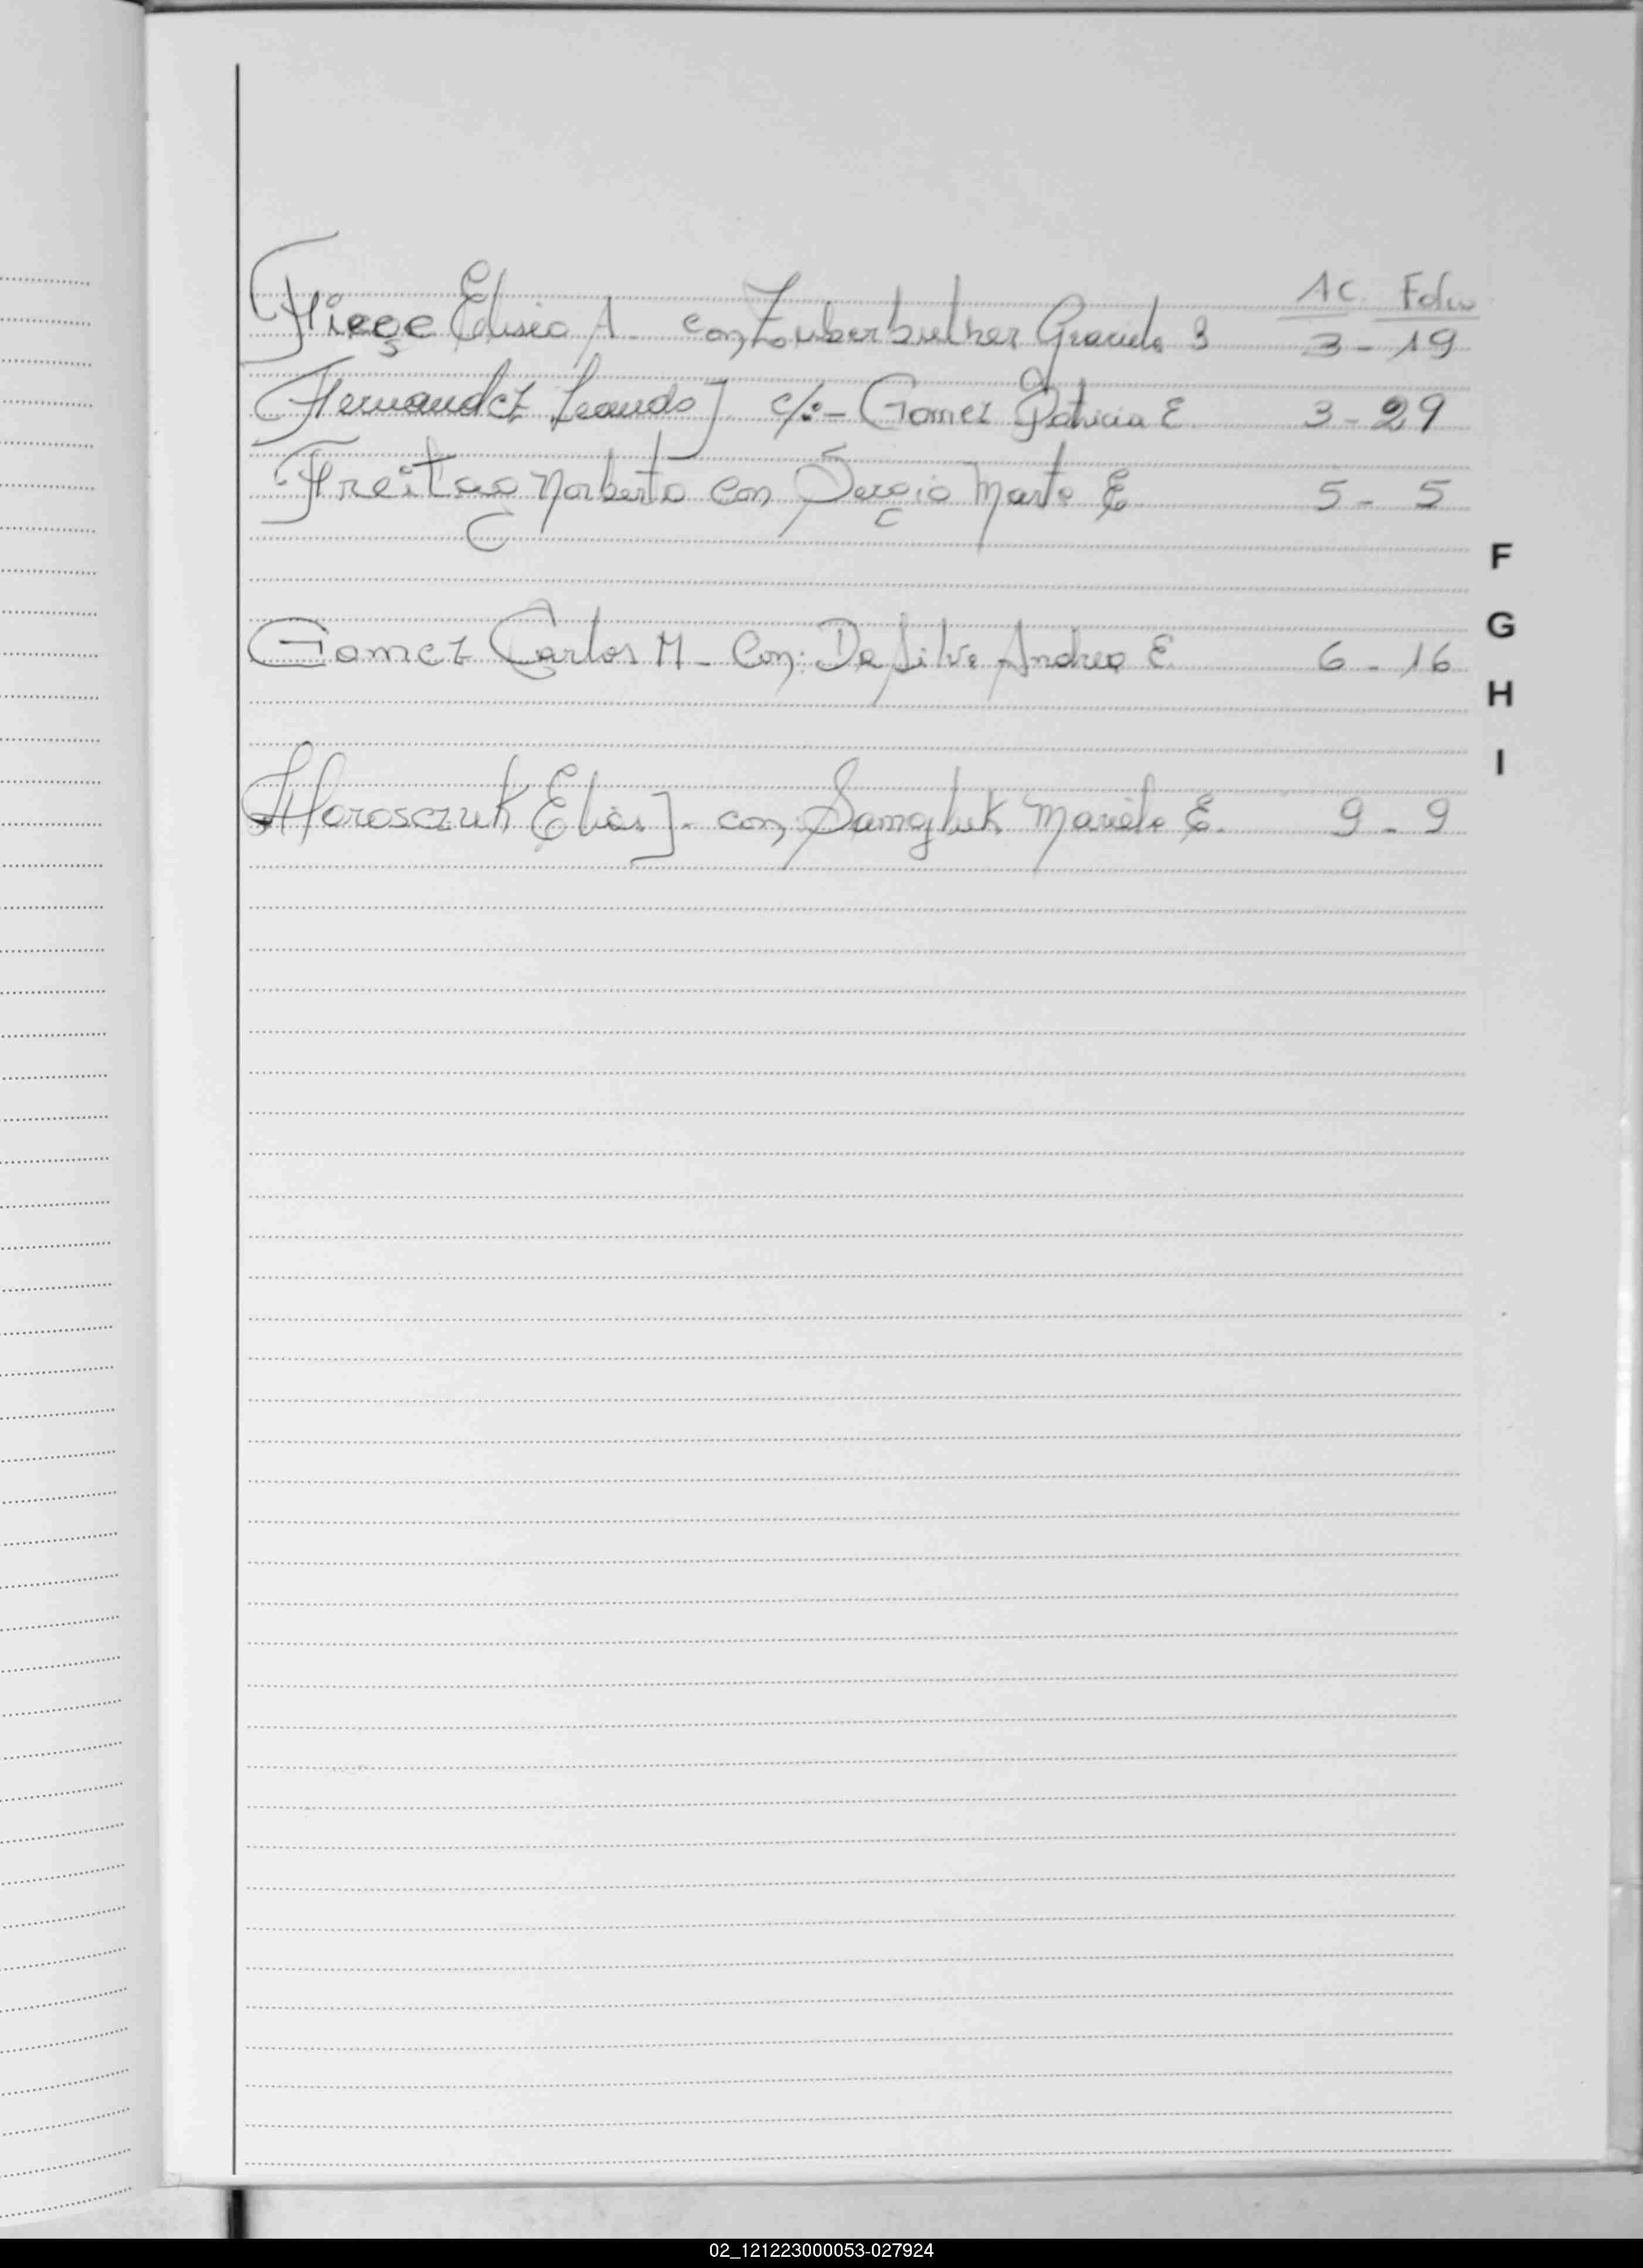 AC. Folio
Fiege Eliseo A. con Zuberbulher Graciela B 3 - 19
Fernandez Leandro J. c/:- Gomez Patricia E. 3 - 29
Freitag Norberto con Sergio Marta E. 5 - 5
F
G
Gomez Carlos M - Con: Da Silva Andrea E. 6 - 16
H
I
Horosczuk Elias J. con Samgluk Mariela E. 9 - 9
02_121223000053-027924